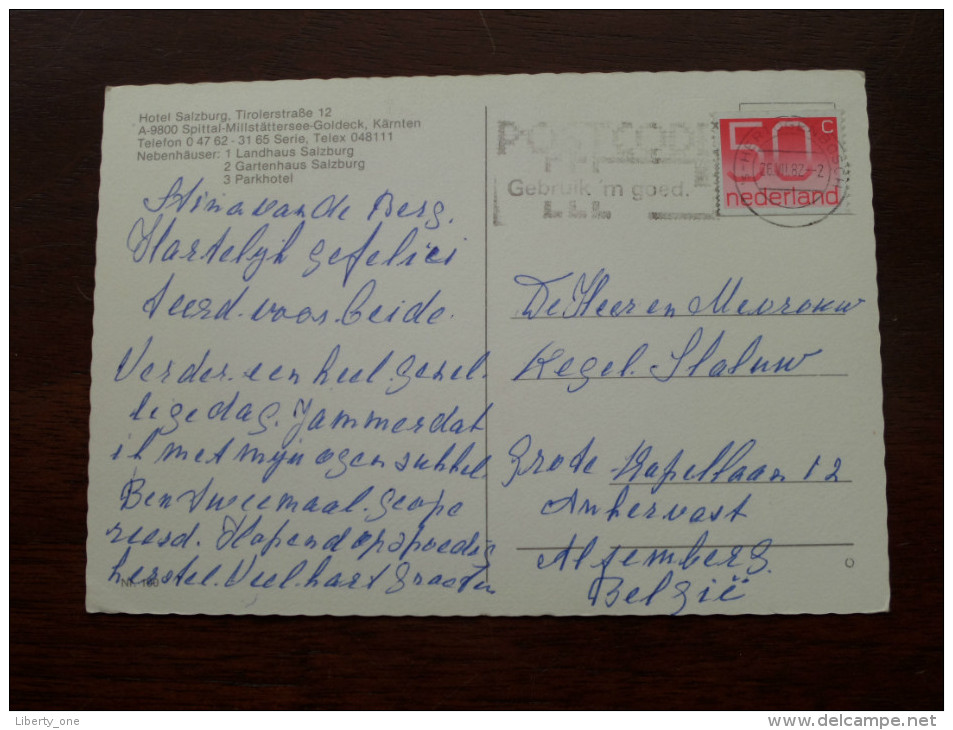 Hotel Salzburg, Tirolerstraße 12
A-9800 Spittal-Millstättersee-Goldeck, Kärnten
Telefon 0 47 62 - 31 65 Serie, Telex 048111
Nebenhäuser: 1 Landhaus Salzburg
2 Gartenhaus Salzburg
3 Parkhotel
Stina van de Berg.
Hartelijk gefelici
teerd. voor. beide.
Verder. een heel. gezel.
lige dag. Jammer dat
ik met mijn ogen sukkel
Ben tweemaal. geope
reerd. Hopend op spoedig
herstel. Veel. hart Groeten
Nr. 180
POSTCODE
Gebruik 'm goed.
50 c
nederland
De Heer en Mevrouw
Kegel.
Grote Kapellaan 12
Ankervast
Alsemberg.
België
Liberty_one
www.delcampe.net